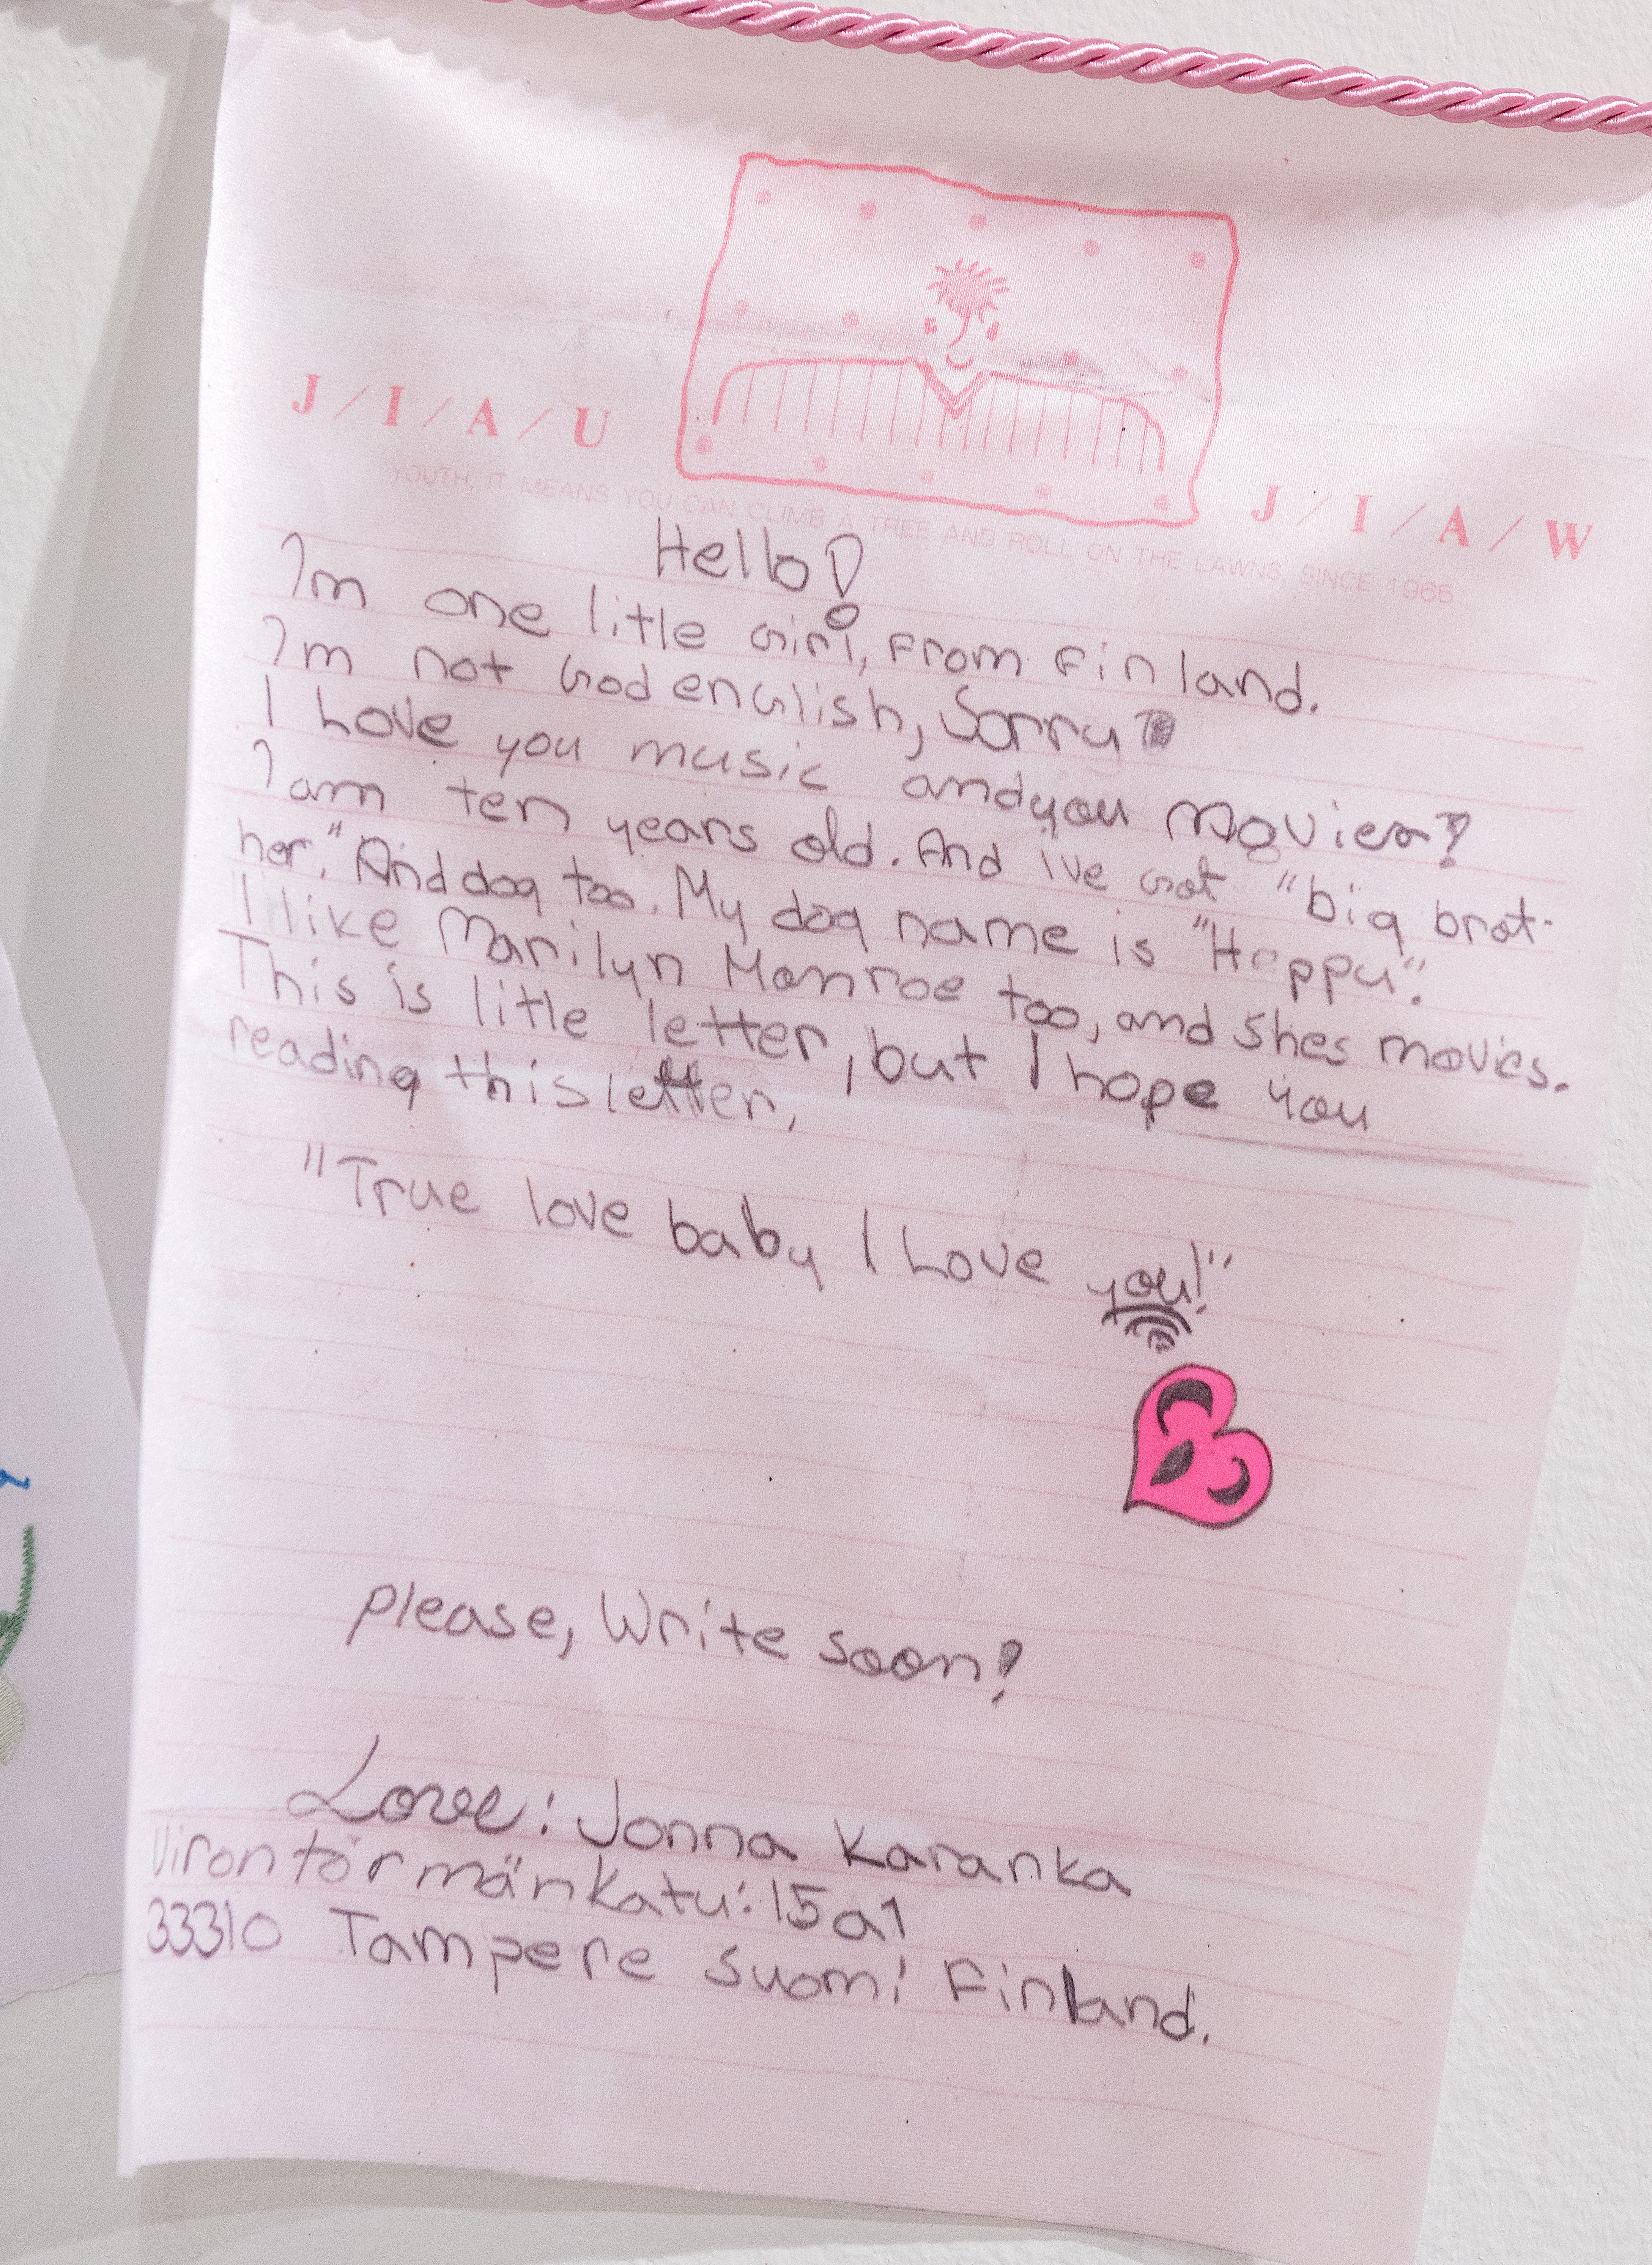 J/I/A/U
J/I/A/W
YOUTH, IT MEANS YOU CAN CLIMB A TREE AND ROLL ON THE LAWNS, SINCE 1965
Hello!
Im one litle Girl, From Finland.
Im not God english, Sorry!
I Love you music and you Movies!
I am ten years old. And ive Got "big brot-
her." And dog too. My dog name is "Heppu".
I like Marilyn Monroe too, and Shes movies.
This is litle letter, but I hope you
reading this letter,
"True love baby I Love you!"
please, Write soon!
Love: Jonna Karanka
Virontörmänkatu: 15 a1
33310 Tampere Suomi Finland.